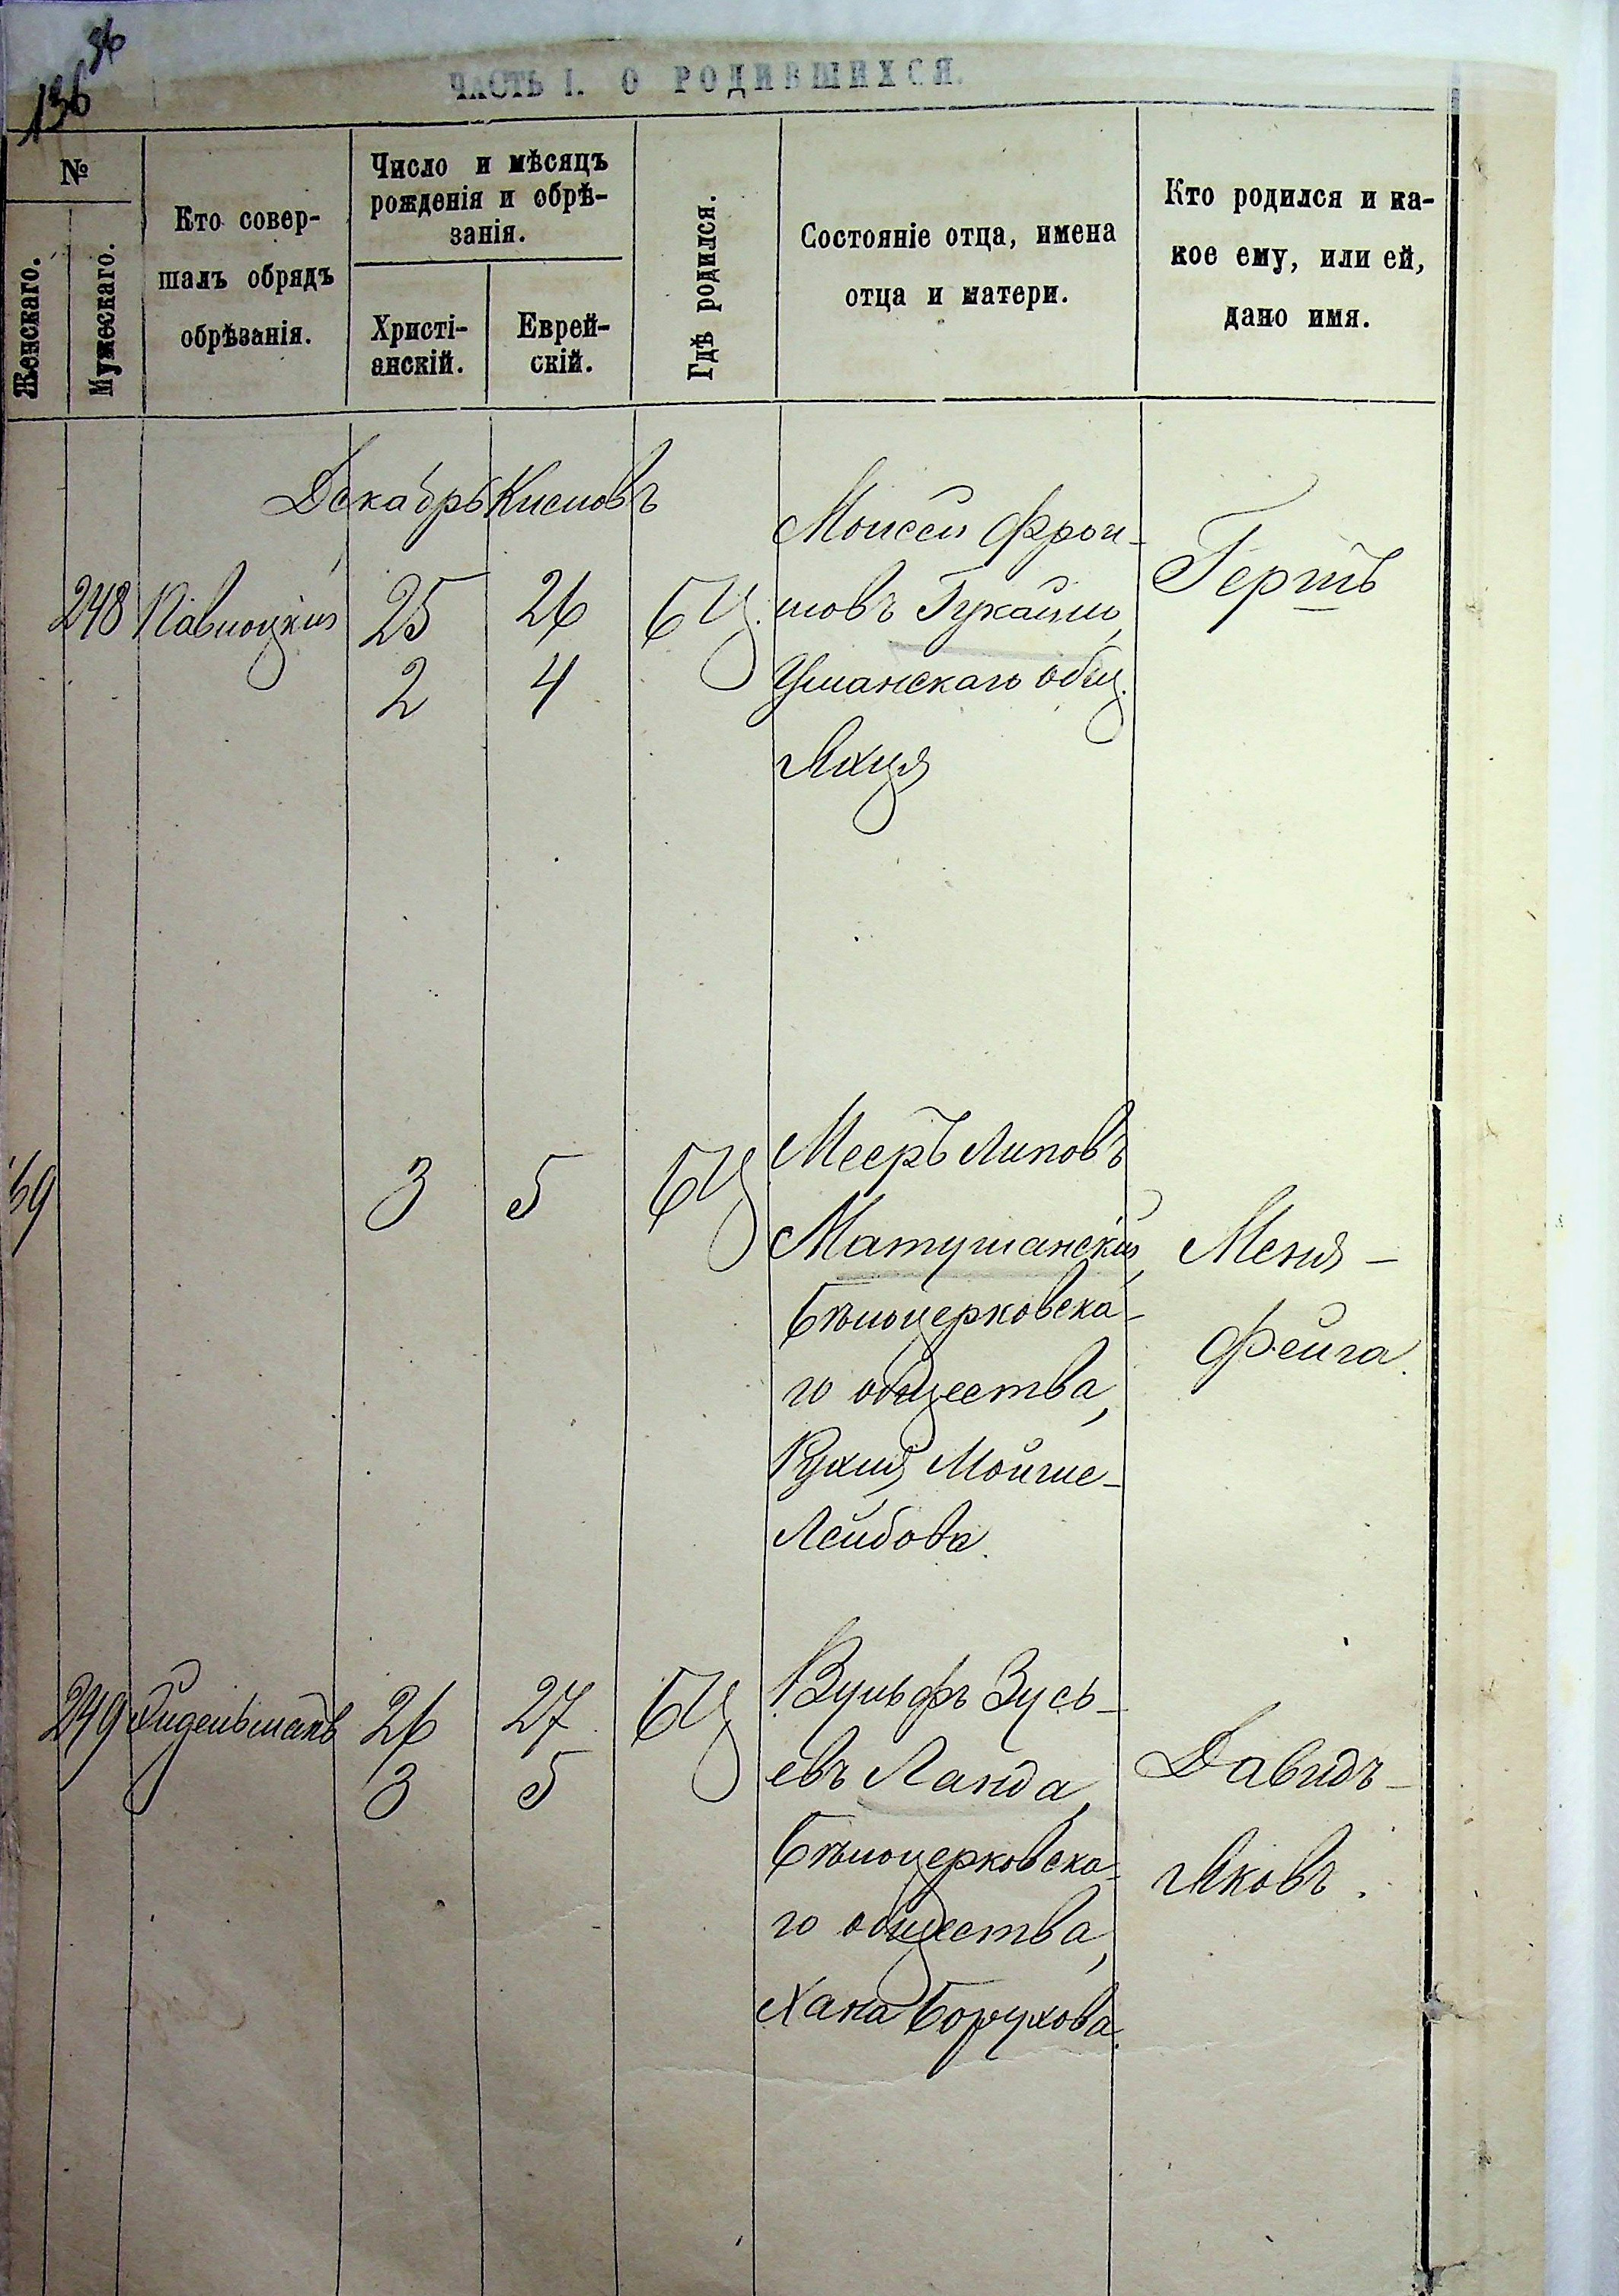 136
96
ЧАСТЬ I. О РОДИВШИХСЯ.
№
Женскаго.
Мужескаго.
Кто совер-
шалъ обрядъ
обрѣзанія.
Число и мѣсяцъ
рожденія и обрѣ-
занія.
Христі-
анскій.
Еврей-
скій.
Гдѣ родился.
Состояніе отца, имена
отца и матери.
Кто родился и ка-
кое ему, или ей,
дано имя.
Декабрь Кислевъ
248 Павлоцкій 25 26 БЦ.
2 4
Моисей Фрои-
мовъ
Уманскаго общ.
Яхця
Гершъ
3 5 БЦ
Мееръ Липовъ
Матушанскій,
Бѣлоцерковска-
го общества,
Рухля Мойше-
Лейбова.
Меня-
Фейга.
249 26 27 БЦ
3 5
Вульфъ Зусь-
евъ Ланда,
Бѣлоцерковска-
го общества,
Хана Борухова.
Давидъ-
Яковъ.